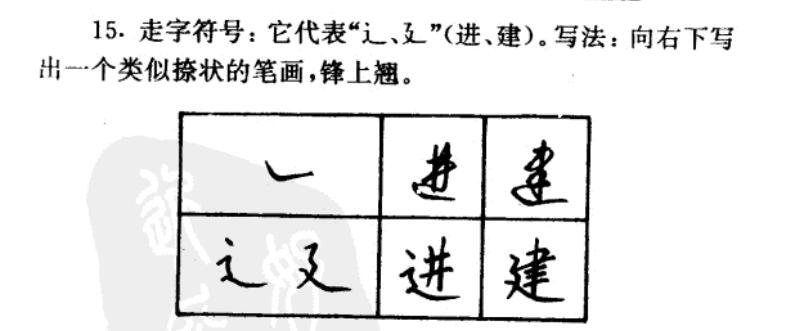 15. 走字符号：它代表“辶、廴”(进、建)。写法：向右下写
出一个类似捺状的笔画，锋上翘。
进 建
辶 廴 进 建